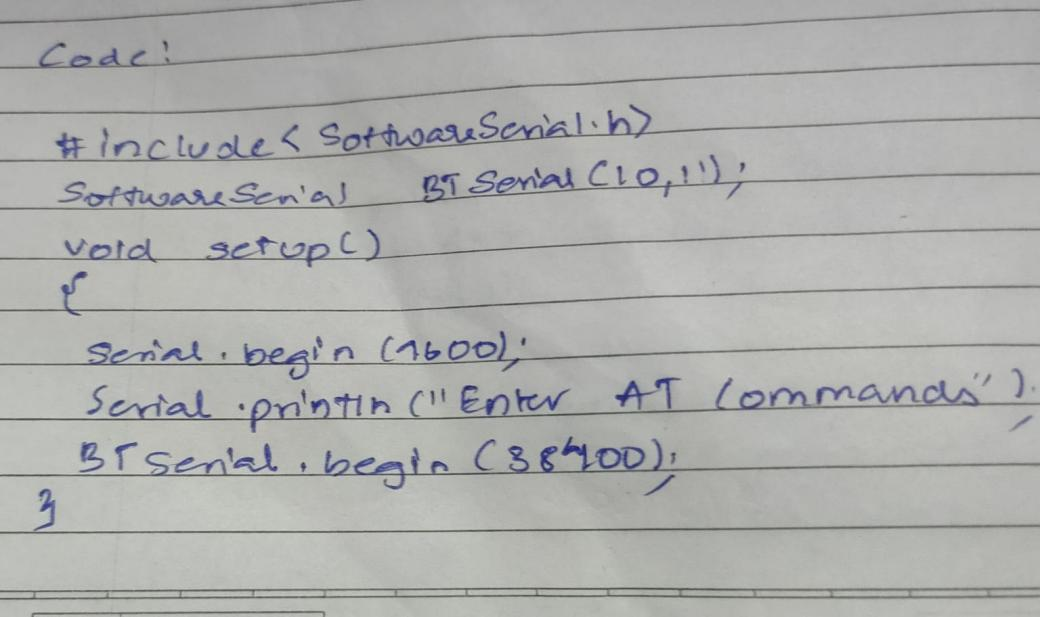 Code:
#include< SoftwareSerial.h>
SoftwareSerial BTSerial (10,11);
void setup()
{
Serial.begin (9600);
Serial.println ("Enter AT Commands");
BTSerial.begin (38400);
}